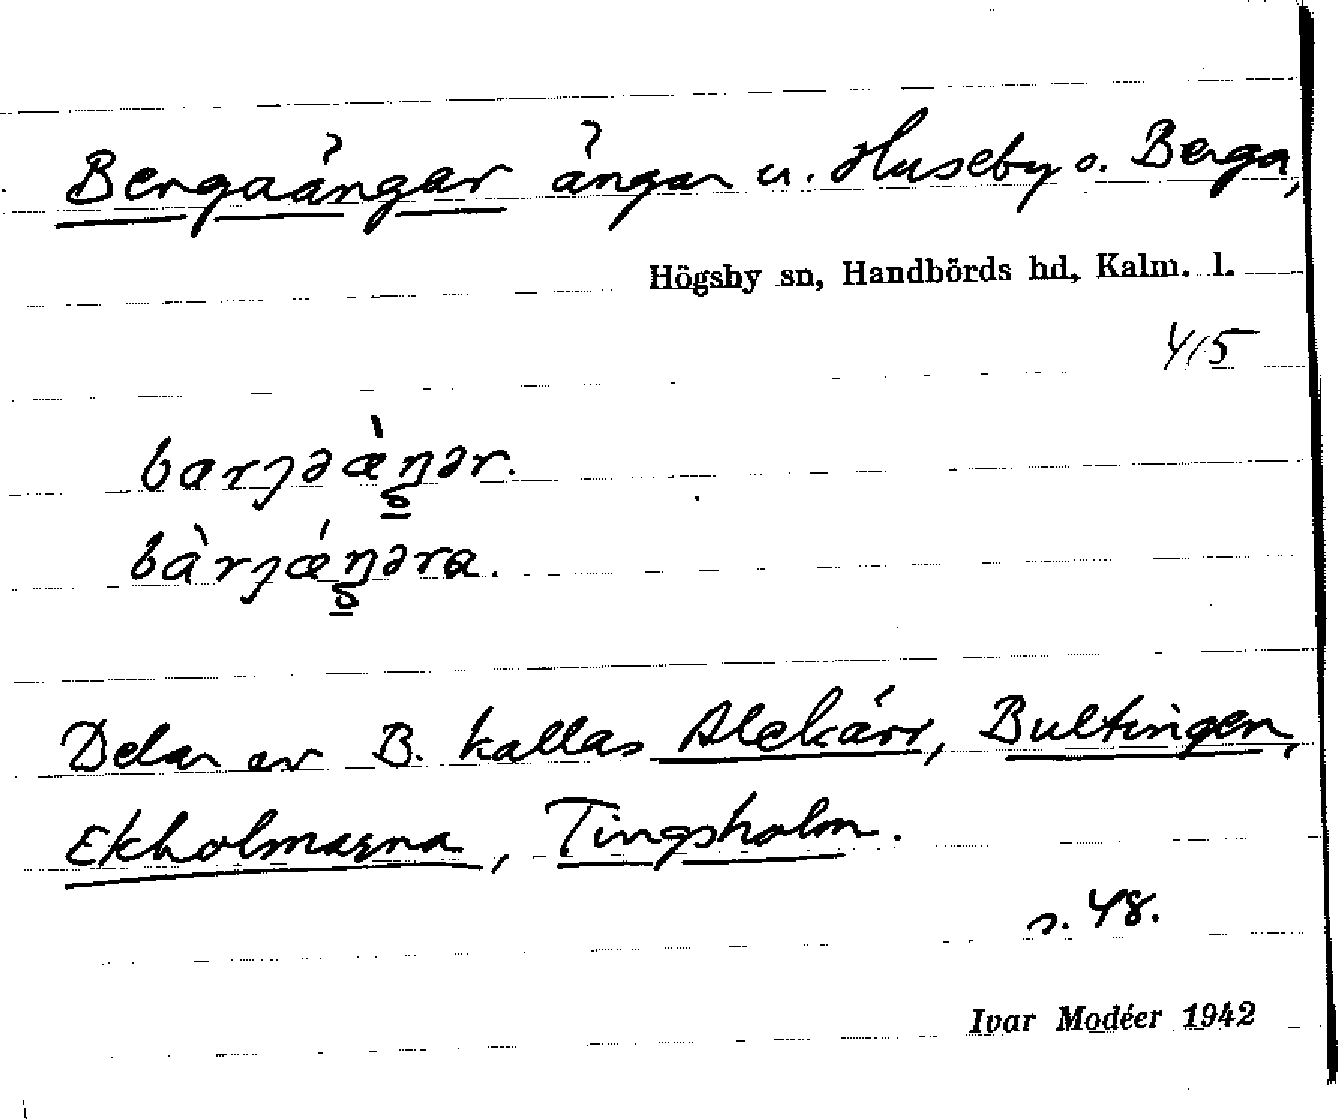 Bergaängar ängar u. Huseby o. Berga,
Högsby sn, Handbörds hd, Kalm. l.
4/5
barɟəæ̀ŋər.
bàrɟǽŋəra.
Delar av B. kallas Alekärr, Bultingen,
Ekholmarna, Tingsholm.
s. 48.
Ivar Modéer 1942